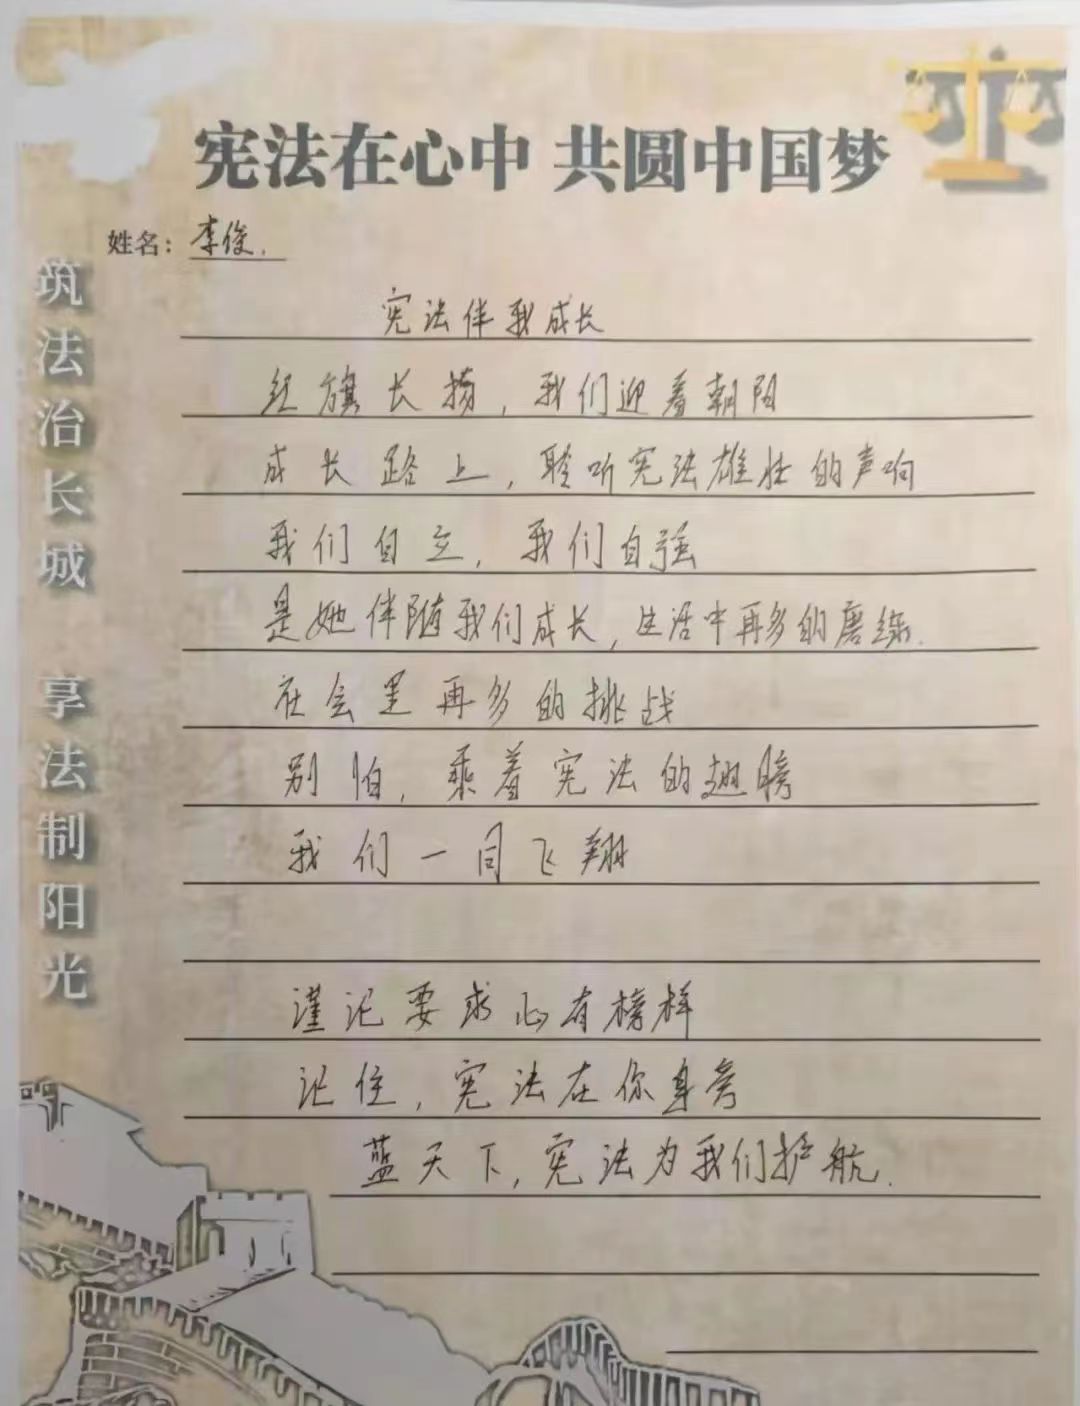 宪法在心中 共圆中国梦
姓名：李俊.
筑法治长城 享法制阳光
宪法伴我成长
红旗长扬，我们迎着朝阳
成长路上，聆听宪法雄壮的声响
我们自立，我们自强
是她伴随我们成长，生活中再多的磨练.
社会里再多的挑战
别怕，乘着宪法的翅膀
我们一同飞翔
谨记要求心有榜样
记住，宪法在你身旁
蓝天下，宪法为我们护航.